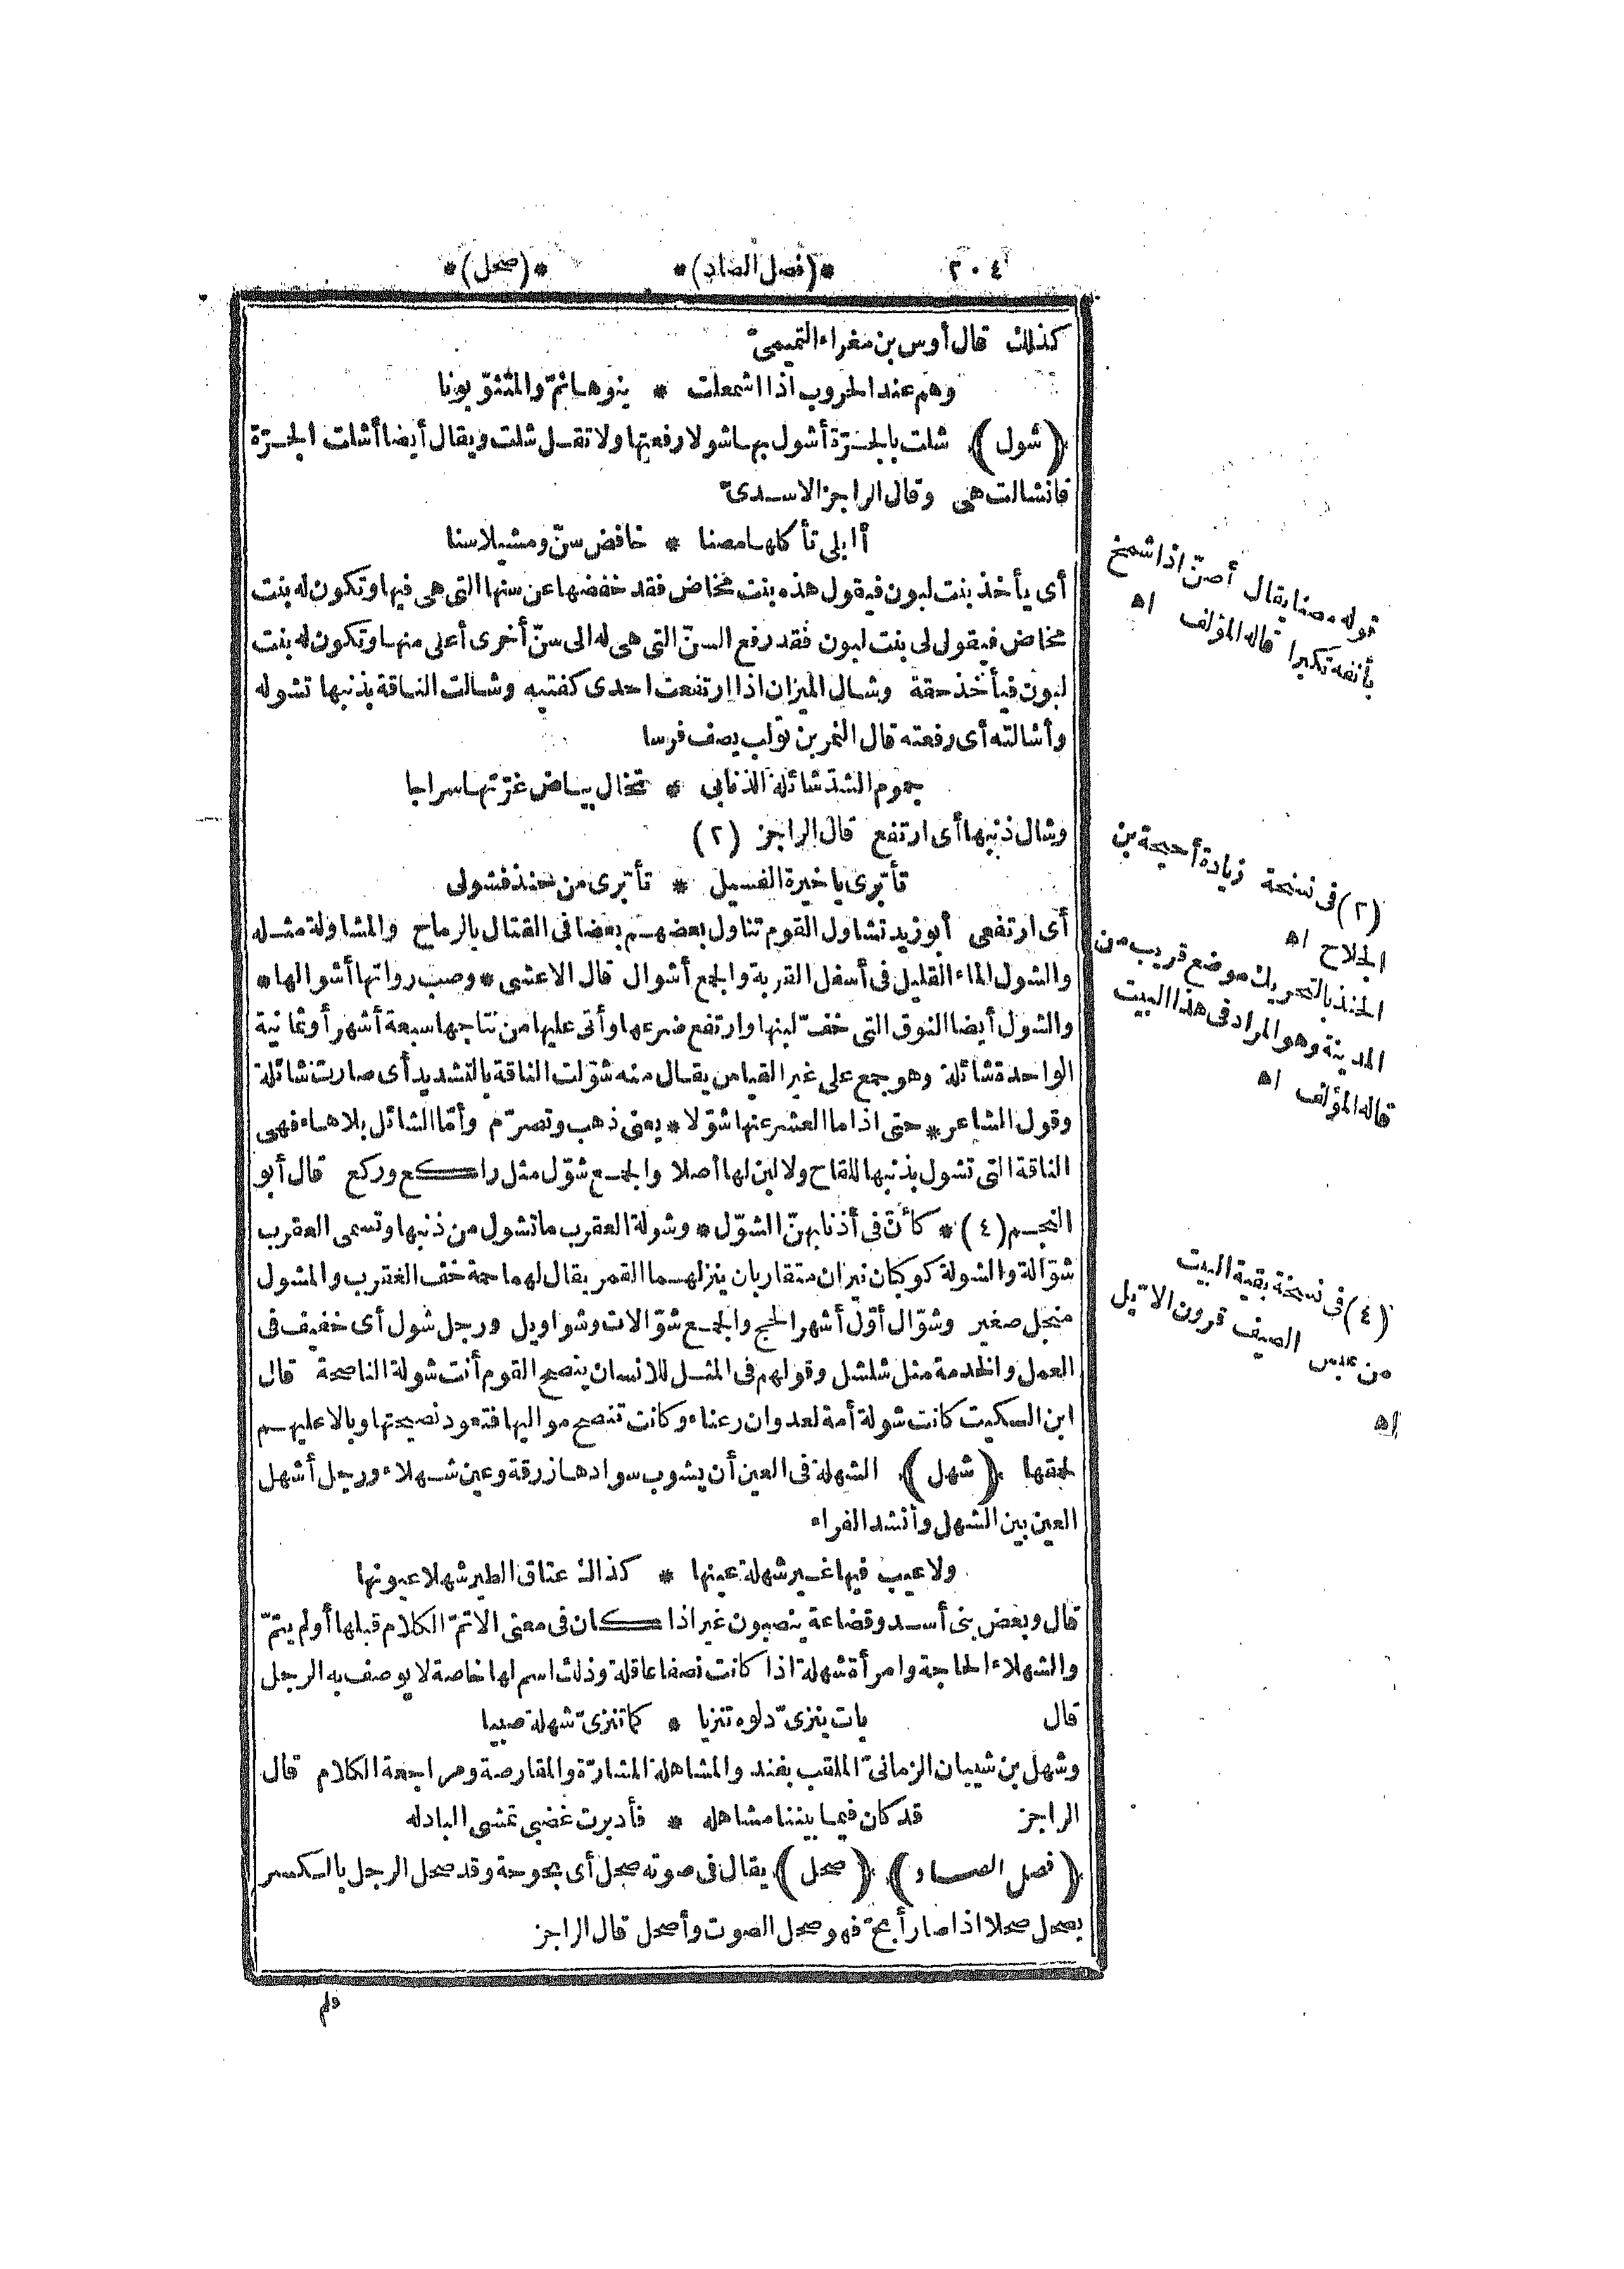 ٣٠٤ *(فصل الصاد)* *(صحل)*
كذلك قال أوس بن مغراء التميمىّ
وهم عند الحروب اذا اشمعلت * بنوها ثمّ والمتثوّبونا
﴿شول﴾ شلت بالجرّة أشول بها شولا رفعتها ولا تقل شلت ويقال أيضا أشلت الجرّة
فانشالت هى وقال الراجز الاسدىّ
أابلى تأكلها مصنا * خافض سنّ ومشيلا سنا
أى يأخذ بنت لبون فيقول هذه بنت مخاض فقد خفضها عن سنها التى هى فيها وتكون له بنت
مخاض فيقول لى بنت لبون فقد رفع السنّ التى هى له الى سنّ أخرى أعلى منها وتكون له بنت
لبون فيأخذ حقة وشال الميزان اذا ارتفعت احدى كفتيه وشالت الناقة بذنبها تشوله
وأشالته أى رفعته قال النمر بن تولب يصف فرسا
جموم الشدّ شائلة الذنابى * تخال بياض غرّتها سراجا
وشال ذنبها أى ارتفع قال الراجز (٢)
تأبّرى يا خيرة الفسيل * تأبّرى من حنذ فشولى
أى ارتفعى أبو زيد تشاول القوم تناول بعضهم بعضا فى القتال بالرماح والمشاولة مثله
والشول الماء القليل فى أسفل القربة والجمع أشوال قال الاعشى * وصب رواتها أشوالها *
والشول أيضا النوق التى خفّ لبنها وارتفع ضرعها وأتى عليها من نتاجها سبعة أشهر أو ثمانية
الواحدة شائلة وهو جمع على غير القياس يقال منه شوّلت الناقة بالتشديد أى صارت شائلة
وقول الشاعر * حتى اذا ما العشر عنها شوّلا * يعنى ذهب وتصرّم وأمّا الشائل بلا هاء فهى
الناقة التى تشول بذنبها للقاح ولا لبن لها أصلا والجمع شوّل مثل راكع وركع قال أبو
النجم (٤) * كأنّ فى أذنابهنّ الشوّل * وشولة العقرب ما تشول من ذنبها وتسمى العقرب
شوّالة والشولة كوكبان نيران متقاربان ينزلهما القمر يقال لهما حمة العقرب والمشول
منجل صغير وشوّال أوّل أشهر الحج والجمع شوّالات وشواويل ورجل شول أى خفيف فى
العمل والخدمة مثل شلشل وقولهم فى المثل للانسان ينصح القوم أنت شولة الناصحة قال
ابن السكيت كانت شولة أمة لعدوان رعناء وكانت تنصح مواليها فتعود نصيحتها وبالا عليهم
لحمقها ﴿شهل﴾ الشهلة فى العين أن يشوب سوادها زرقة وعين شهلاء ورجل أشهل
العين بين الشهل وأنشد الفراء
ولا عيب فيها غير شهلة عينها * كذاك عتاق الطير شهلا عيونها
قال وبعض بنى أسد وقضاعة ينصبون غير اذا كان فى معنى الا تمّ الكلام قبلها أو لم يتمّ
والشهلاء الحاجة وامرأة شهلة اذا كانت نصفا عاقلة وذلك اسم لها خاصة لا يوصف به الرجل
قال باتت ينزىّ دلوه تنزيا * كما تنزىّ شهلة صبيا
وشهل بن شيبان الزمانىّ الملقب بفند والمشاهلة المشارّة والمقارصة ومراجعة الكلام قال
الراجز قد كان فيما بيننا مشاهله * فأدبرت غضبى تمشى البادله
﴿فصل الصاد﴾ ﴿صحل﴾ يقال فى صوته صحل أى بحوحة وقد صحل الرجل بالكسر
يصحل صحلا اذا صار أبحّ فهو صحل الصوت وأصحل قال الراجز
فلم
قوله مصنا يقال أصنّ اذا شمخ
بأنفه تكبرا قاله المؤلف اه
(٢) فى نسخة زيادة أحيحة بن
الجلاح اه
الحنذ بالتحريك موضع قريب من
المدينة وهو المراد فى هذا البيت
قاله المؤلف اه
(٤) فى نسخة بقية البيت
من عبس الصيف قرون الايّل
اه